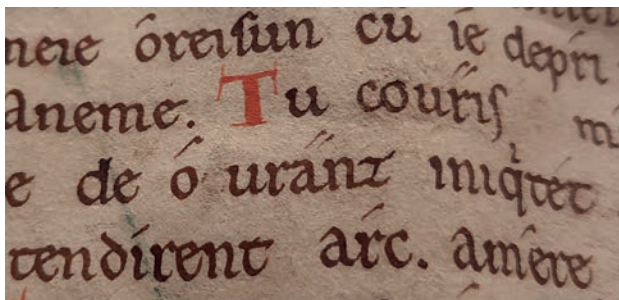 neie óreiſun cū ie depri
aneme. Tu couris m
e de ó uránz iniq̍tét
tendirent arc. amere